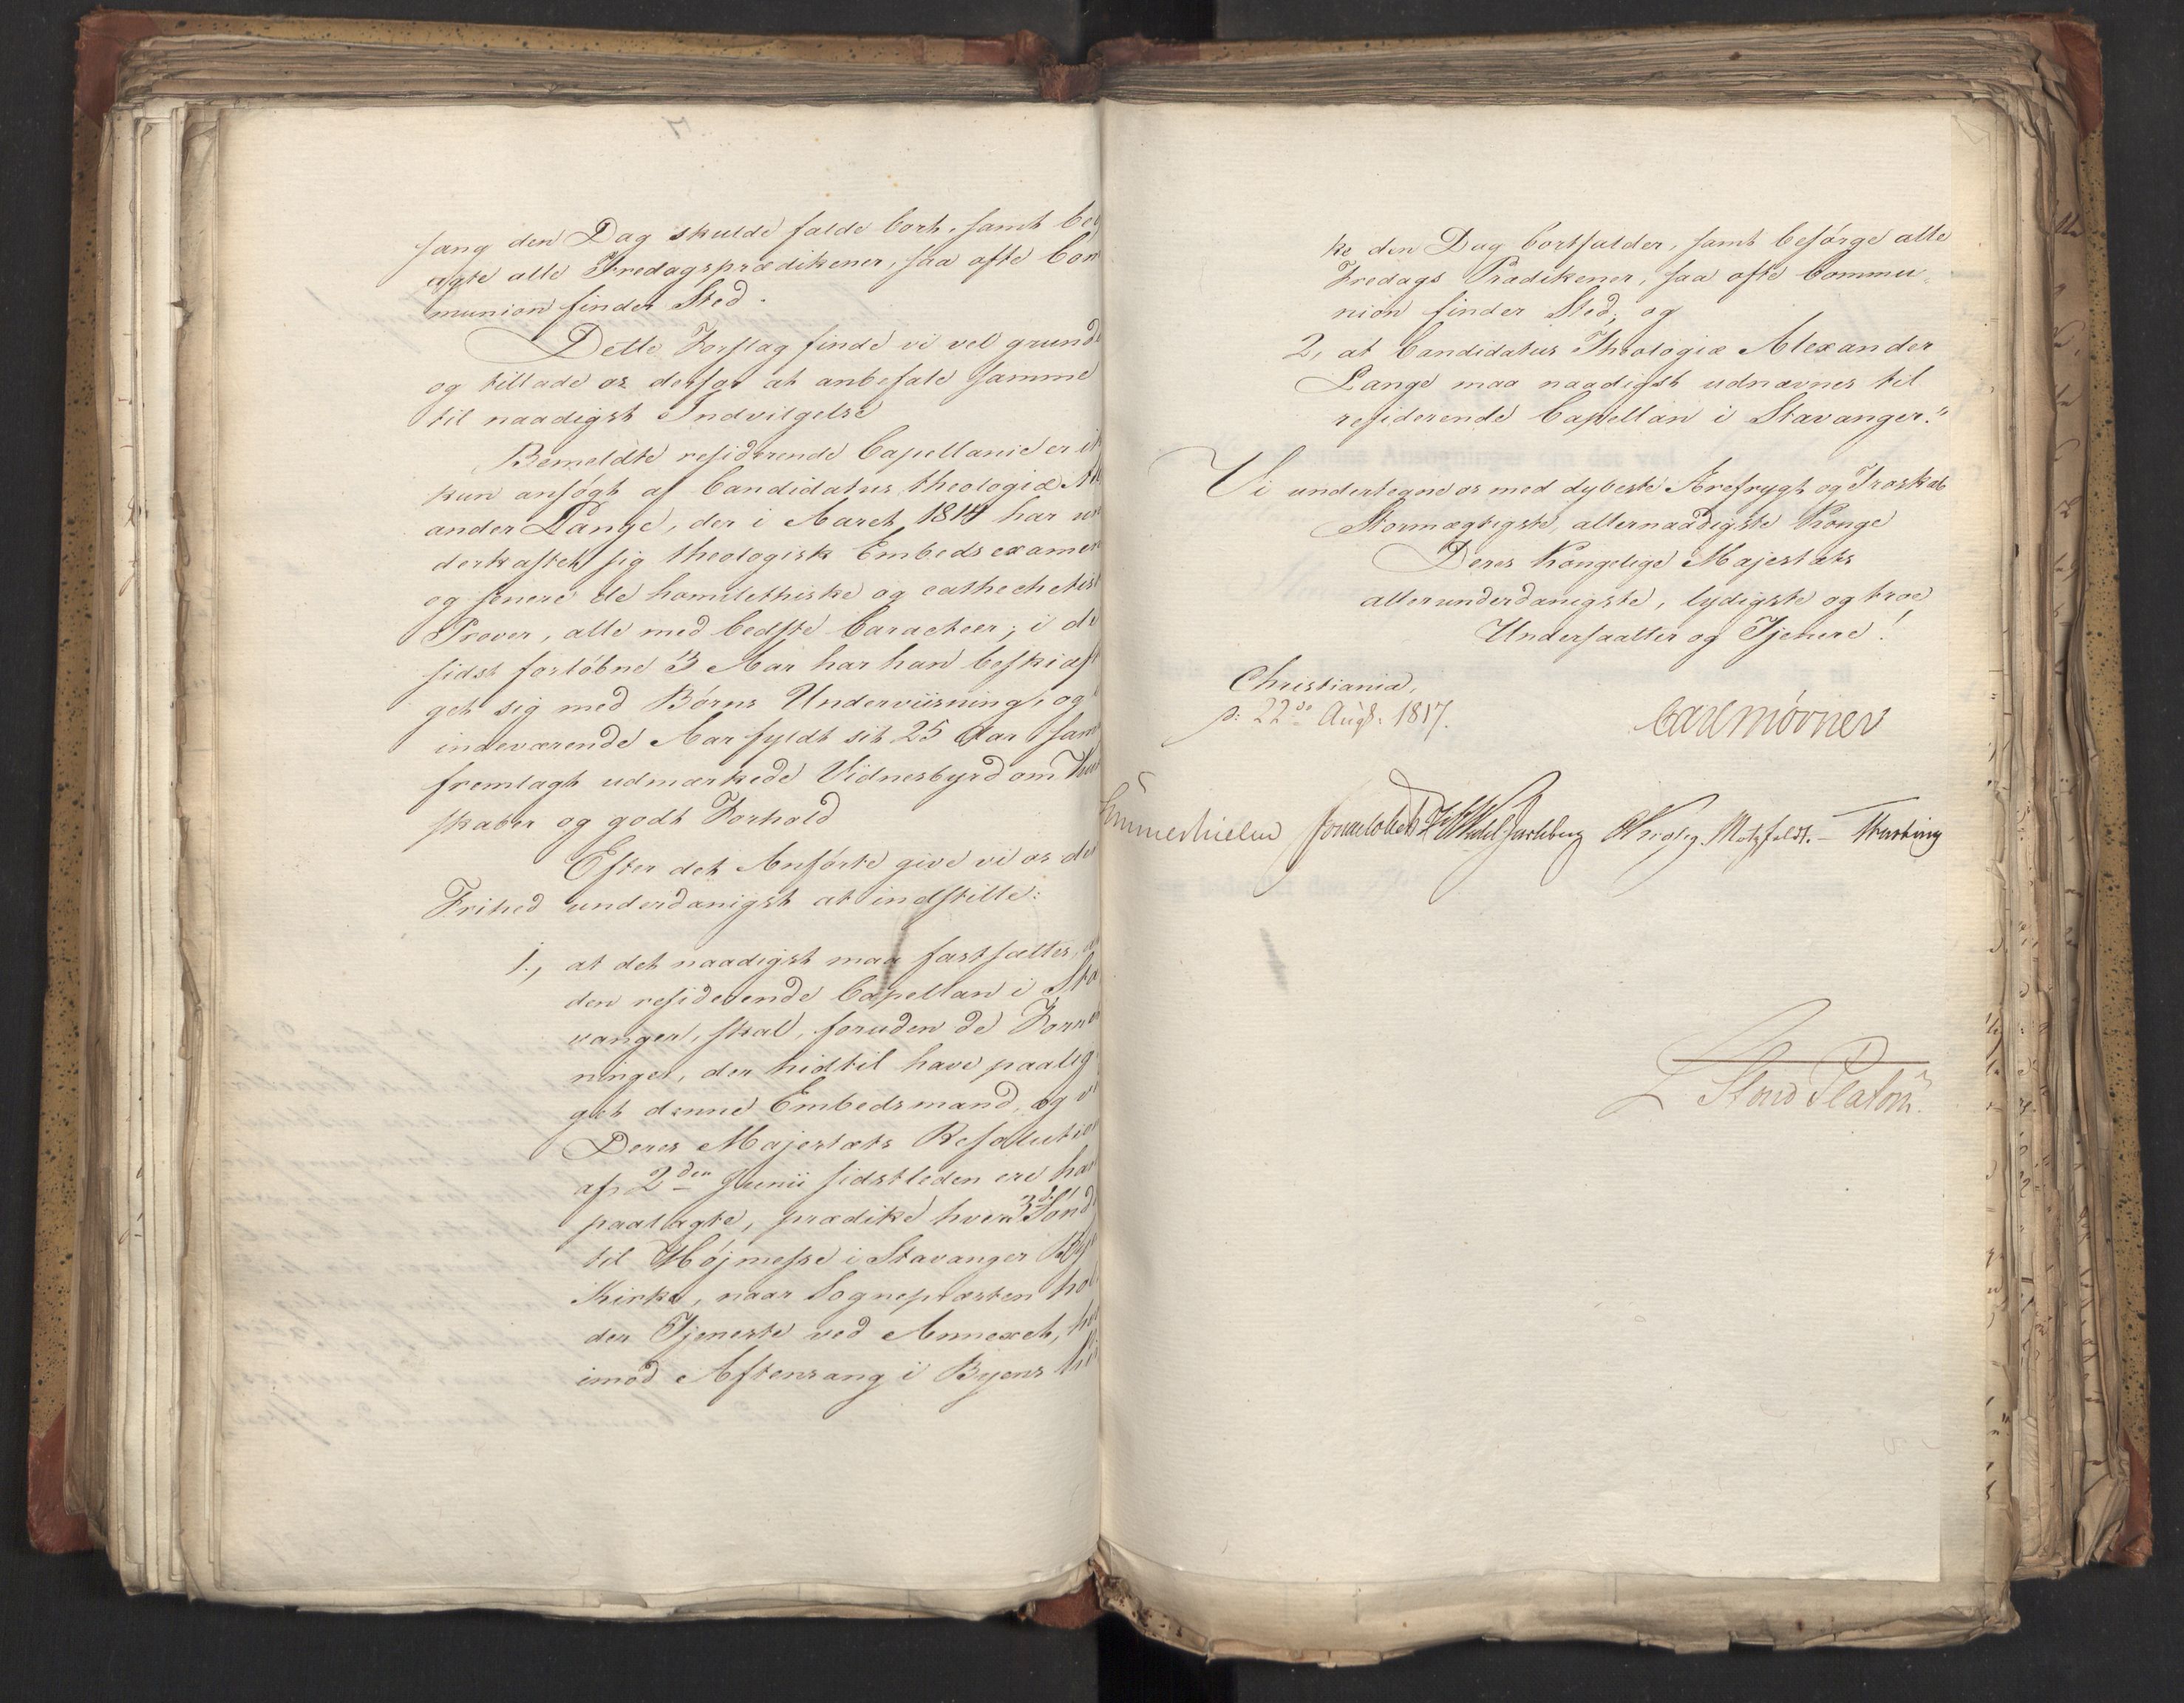 sang den Dag skulde falde bort, samt be
alle Fredagsprædikener, saa ofte Com
munion finder Sted.
Dette Forslag finde vi vel grund
og tillade os derfor at anbefale samme
til naadigst Indvilgelse
Bemeldte residerende Capellanie er ik
kun ansøgt af Candidatus theologiæ Al
ander Lange, der i Aaret 1814 har un
derkastet sig theologisk Embedsexamen
og senere de homilethiske og cathechetis
Prøver, alle med bedste Caracteer; i de
sidst forløbne 3 Aar har han beskiæf
get sig med Børns Underviisning, og
indeværende Aar fyldt sit 25 Aar sam
fremlagt udmærkede Vidnesbyrd om
skaber og godt Forhold
Efter det Anførte give vi os de
Frihed underdanigst at indstille:
1., at det naadigst maa fastsættes,
den residerende Capellan i Sta
vanger, skal, foruden de Forret
ninger, der hidtil have paalig
get denne Embedsmand, og
Deres Majestæts Resolution
af 2den Junii sidstleden ere ham
paalagte, prædike hver 3die Sønd
til Højmesse i Stavanger Bye
Kirke, naar Sognepræsten hol
der Tjeneste ved Annexet, hvor
imod Aftensang i Byens Kir
ke den Dag bortfalder, samt besørge alle
Fredags Prædikener, saa ofte Commu
nion finder Sted, og
2, at Candidatus Theologiæ Alexander
Lange maa naadigst udnævnes til
residerende Capellan i Stavanger."
Vi undertegne os med dybeste Ærefrygt og Troskab
Stormægtigste, allernaadigste Konge
Deres Kongelige Majestæts
allerunderdanigste, lydigste og troe
Undersaatter og Tjenere!
Christiania,
d: 22de Augt. 1817.
Carl Mörner
Sommerhielm Jonas Collett Wedel Jarlsberg Krohg. Motzfeldt. Treschow